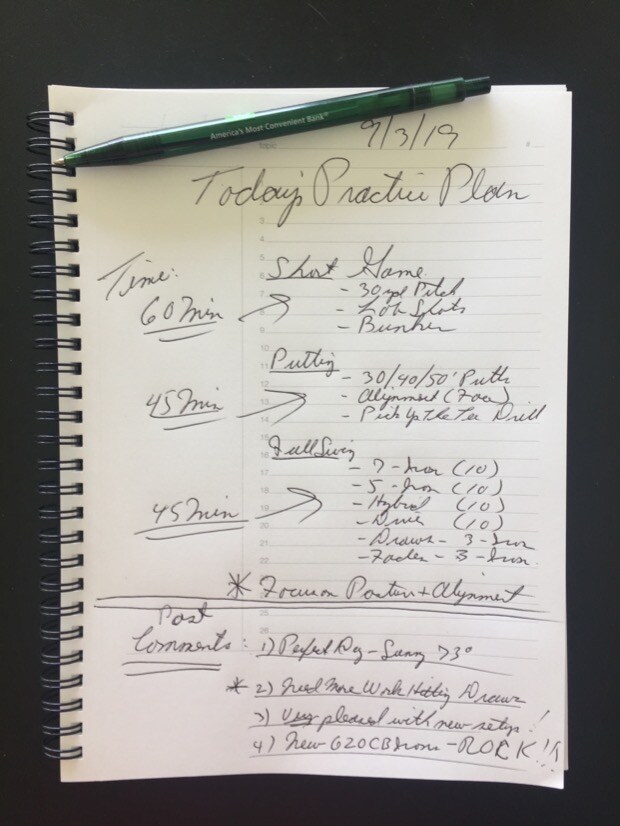 America's Most Convenient Bank®
topic
9/3/19
Today's Practice Plan
Time:
Short Game
60 Min
- 30 yd Pitch
- Lob Shots
- Bunker
Putting
45 Min
- 30/40/50' Putts
- Alignment
- Pick Up the Tee Drill
Full Swing
45 Min
- 7-Iron (10)
- 5-Iron (10)
- Hybrid (10)
- Driver (10)
- Draws - 3-Iron
- Fades - 3-Iron
* Focus on Posture + Alignment
Post
Comments:
1) Perfect Day - Sunny 73°
* 2) Need More Work Hitting Draws
3) Very pleased with new setup!
4) New G20CB Irons - ROCK!!!